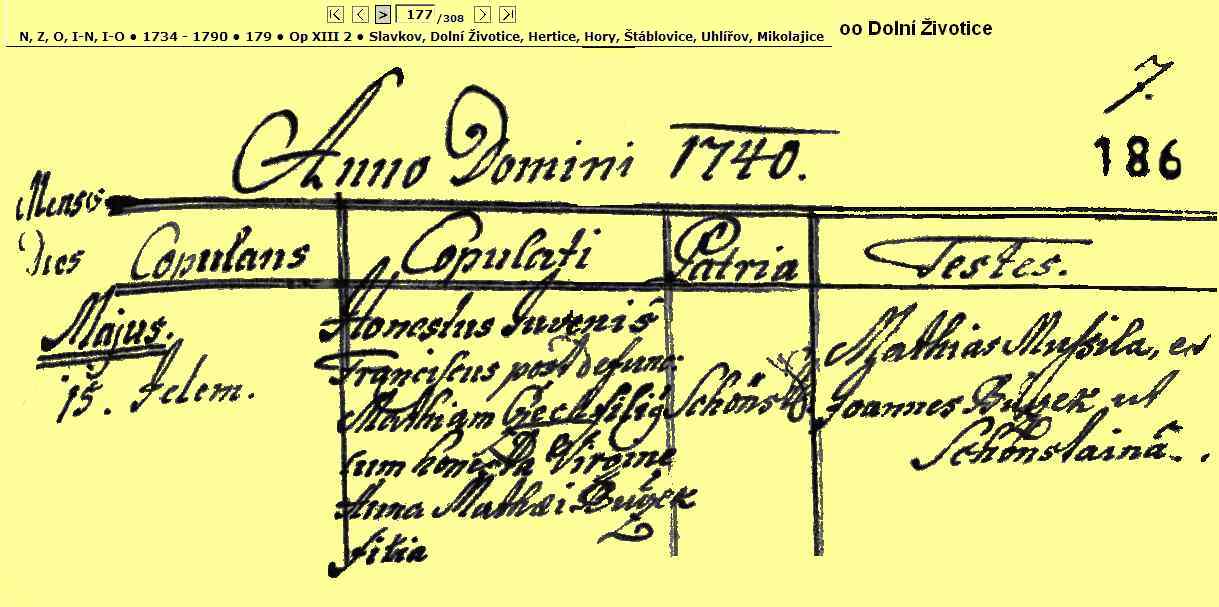 177 /308
N, Z, O, I-N, I-O • 1734 - 1790 • 179 • Op XIII 2 • Slavkov, Dolní Životice, Hertice, Hory, Štáblovice, Uhlířov, Mikolajice
oo Dolní Životice
7.
Anno Domini 1740.
186
Mensis
Dies Copulans Copulati Patria Testes.
Majus.
15. Idem.
Honestus Juvenis
Franciscus post defunc:
Mathiam Czech filig
cum honesta Virgine
Anna Mathæi Bužek
filia
Schönst
Mathias Mussila, et
Joannes Bužek ut
Schönstainā.